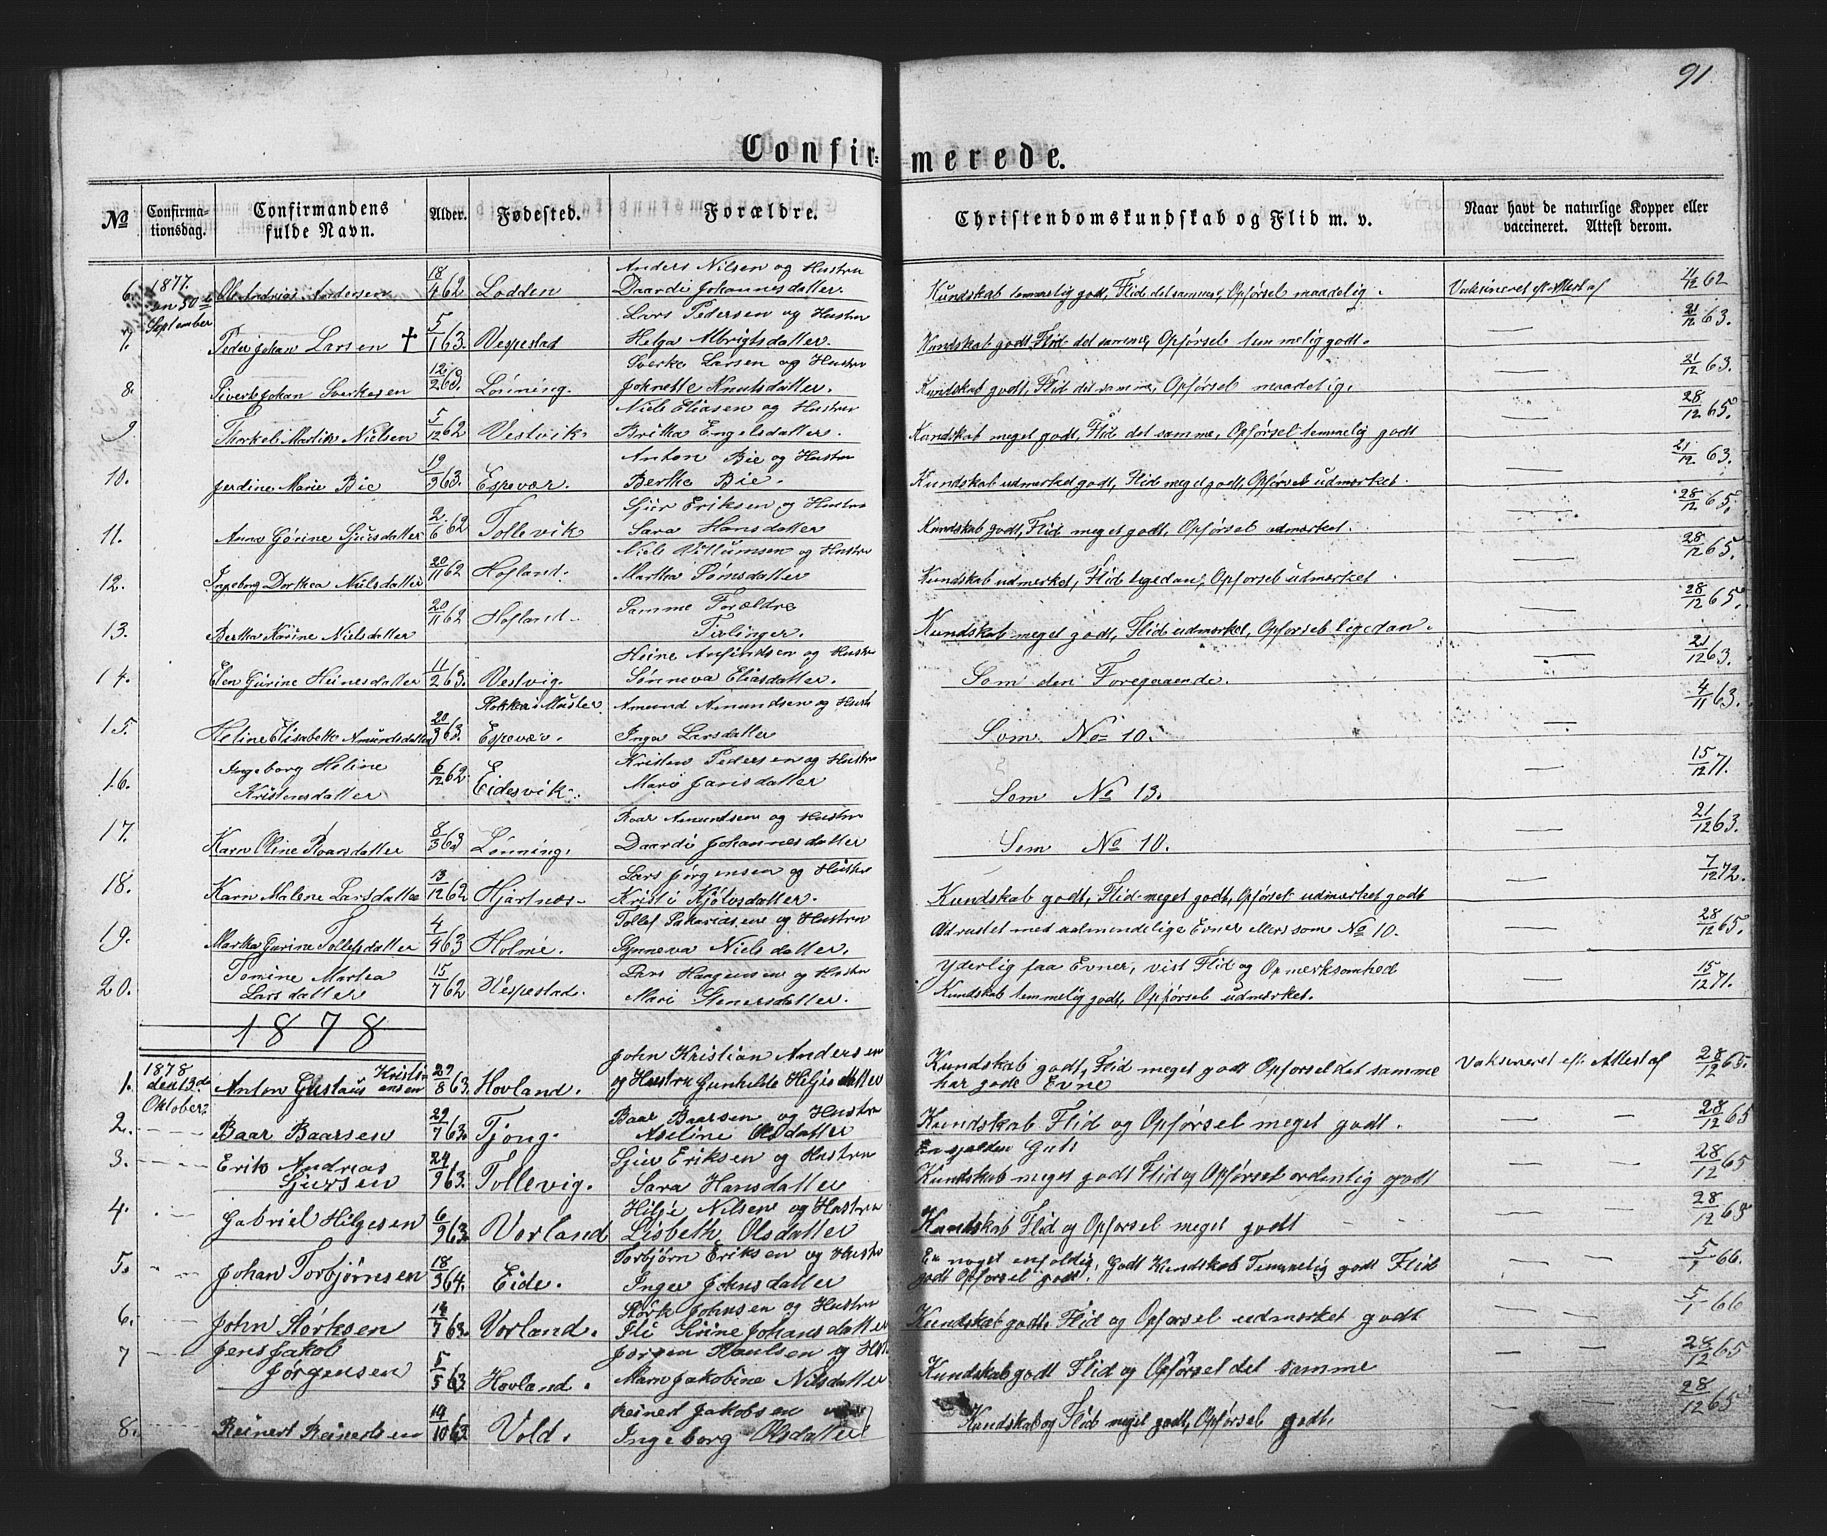 91
Confir= merede.
No Confirmationsdag. Confirmandens fulde Navn. Alder. Fødested. Forældre. Christendomskundskab og Flid m. v. Naar havt de naturlige Kopper eller vaccineret. Attest derom.
1877. den 30te September
6. Ole Andreas Andersen 18/4 62 Lodden Anders Nilsen og Hustru Daardi Johannesdatter. Kundskab temmelig godt, Flid det samme, Opførsel maadelig. Vaksineret eft. Attest af 11/12 62
7. Peder Johan Larsen † 5/1 63. Vespestad Lars Pedersen og Hustru Helga Albrigtsdatter. Kundskab godt, Flid det samme, Opførsel temmelig godt. — 21/12 63.
8. Sivert Johan Sverkesen 12/2 63. Lønning. Sverke Larsen og Hustru Johnette Knutsdatter. Kundskab godt, Flid det samme, Opførsel maadelig. — 21/12 63.
9 Thorkel Martin Nielsen 5/12 62 Vestvik. Niels Eliasen og Hustru Britha Engelsdatter. Kundskab meget godt, Flid det samme, Opførsel temmelig godt — 28/12 65.
10. Jerdine Marie Bie 19/9 63. Espevær. Anton Bie og Hustru Berthe Bie. Kundskab udmerket godt, Flid meget godt, Opførsel udmerket. — 21/12 63.
11. Anna Gørine Sjursdatter 2/6 62 Tollevik Sjur Eriksen og Hustru Sara Hansdatter Kundskab godt, Flid meget godt, Opførsel udmerket. — 28/12 65.
12. Ingeborg Dorthea Nielsdatter 20/11 62 Hofland. Niels Villumsen og Hustru Martha Tønesdatter Kundskab udmerket, Flid ligedan, Opførsel udmerket — 28/12 65.
13. Bertha Karine Nielsdatter 20/11 62 Hofland. Samme Forældre Tvilinger. Kundskab meget godt, Flid udmerket, Opførsel ligedan. — 28/12 65.
14. Elen Gurine Heinesdatter 11/2 63. Vestvig. Heine Anfindsen og Hustru Sønneva Eliasdatter. Som den Foregaaende. — 21/12 63.
15. Heline Elisabeth Amundsdatter 20/3 63. Rokka i Moster. Espevær. Amund Amundsen og Hust Inga Larsdatter Som No 10. — 4/11 63.
16. Ingeborg Heline Kristensdatter 6/12 62 Eidesvik. Kristen Pedersen og Hustru Mari Jansdatter Som No 13. — 15/12 71.
17. Karn Oline Roarsdatter 8/3 63 Lønning. Roar Amundsen og Hustru Daardi Johannesdatter Som No 10. — 21/12 63.
18. Karn Malene Larsdatter 13/12 62 Hjartnæs. Lars Jørgensen og Hustru Kristi Kjølvsdatter. Kundskab godt, Flid meget godt, Opførsel udmerket godt — 7/12 72.
19. Martha Gurine Tollefsdatter 4/4 63 Holme. Tollef Sakariasen og Hustru Synneva Nielsdatter. Udrustet med ualmendelige Evner ellers som No 10. — 28/12 65.
20. Tomine Martea Larsdatter 15/7 62 Vespestad. Lars Haagensen og Hustru Mari Stenersdatter. Yderlig faa Evner, vist Flid og Opmerksomhed Kundskab temmelig godt, Opførsel udmerket. — 15/12 71.
1878
1878 den 13de Oktober.
1. Anton Gustavs Kristianansen 29/8 63. Hovland. John Kristian Andersen og Hustru Gunhilde Heljesdatter Kundskab godt, Flid meget godt Opførsel det samme har gode Evne Vaksineret eft. Attest af 28/12 65.
2. Baar Baarsen 29/7 63. Tjong. Baar Baarsen og Hustru Aseline Olsdatter Kundskab Flid og Opførsel meget godt. — — 28/12 65
3. Erik Andreas Sjursen 24/9 63. Tollevig. Sjur Eriksen og Hustru Sara Hansdatter Kundskab meget godt Flid og Opførsel ordenlig godt — — 28/12 65
4. Gabriel Hilgesen 6/9 63. Vorland Hilge Nilsen og Hustru Lisbeth Olsdatter Kundskab Flid og Opførsel meget godt — — 28/12 65
5. Johan Torbjørnsen 18/3 64. Eide. Torbjørn Eriksen og Hustru Inger Johnsdatter Er noget enfoldig, Godt Kundskab Temmelig godt Flid godt Opførsel godt. — — 5/1 66.
6. John Størksen 16/7 63. Vorland. Størk Johnsen og Hustru Sirine Johansdatter Kundskab godt, Flid og Opførsel udmerket godt — — 5/1 66
7 Jens Jakob Jørgensen 5/5 63 Hovland. Jørgen Paulsen og Hust Marn Jakobine Nilsdatter Kundskab godt Flid og Opførsel det samme — — 28/12 65
8. Reinert Reinertsen 19/10 62 Vold. Reinert Jakobsen Ingeborg Olsdatter Kundskab og Flid meget godt, Opførsel godt. — — 28/12 65